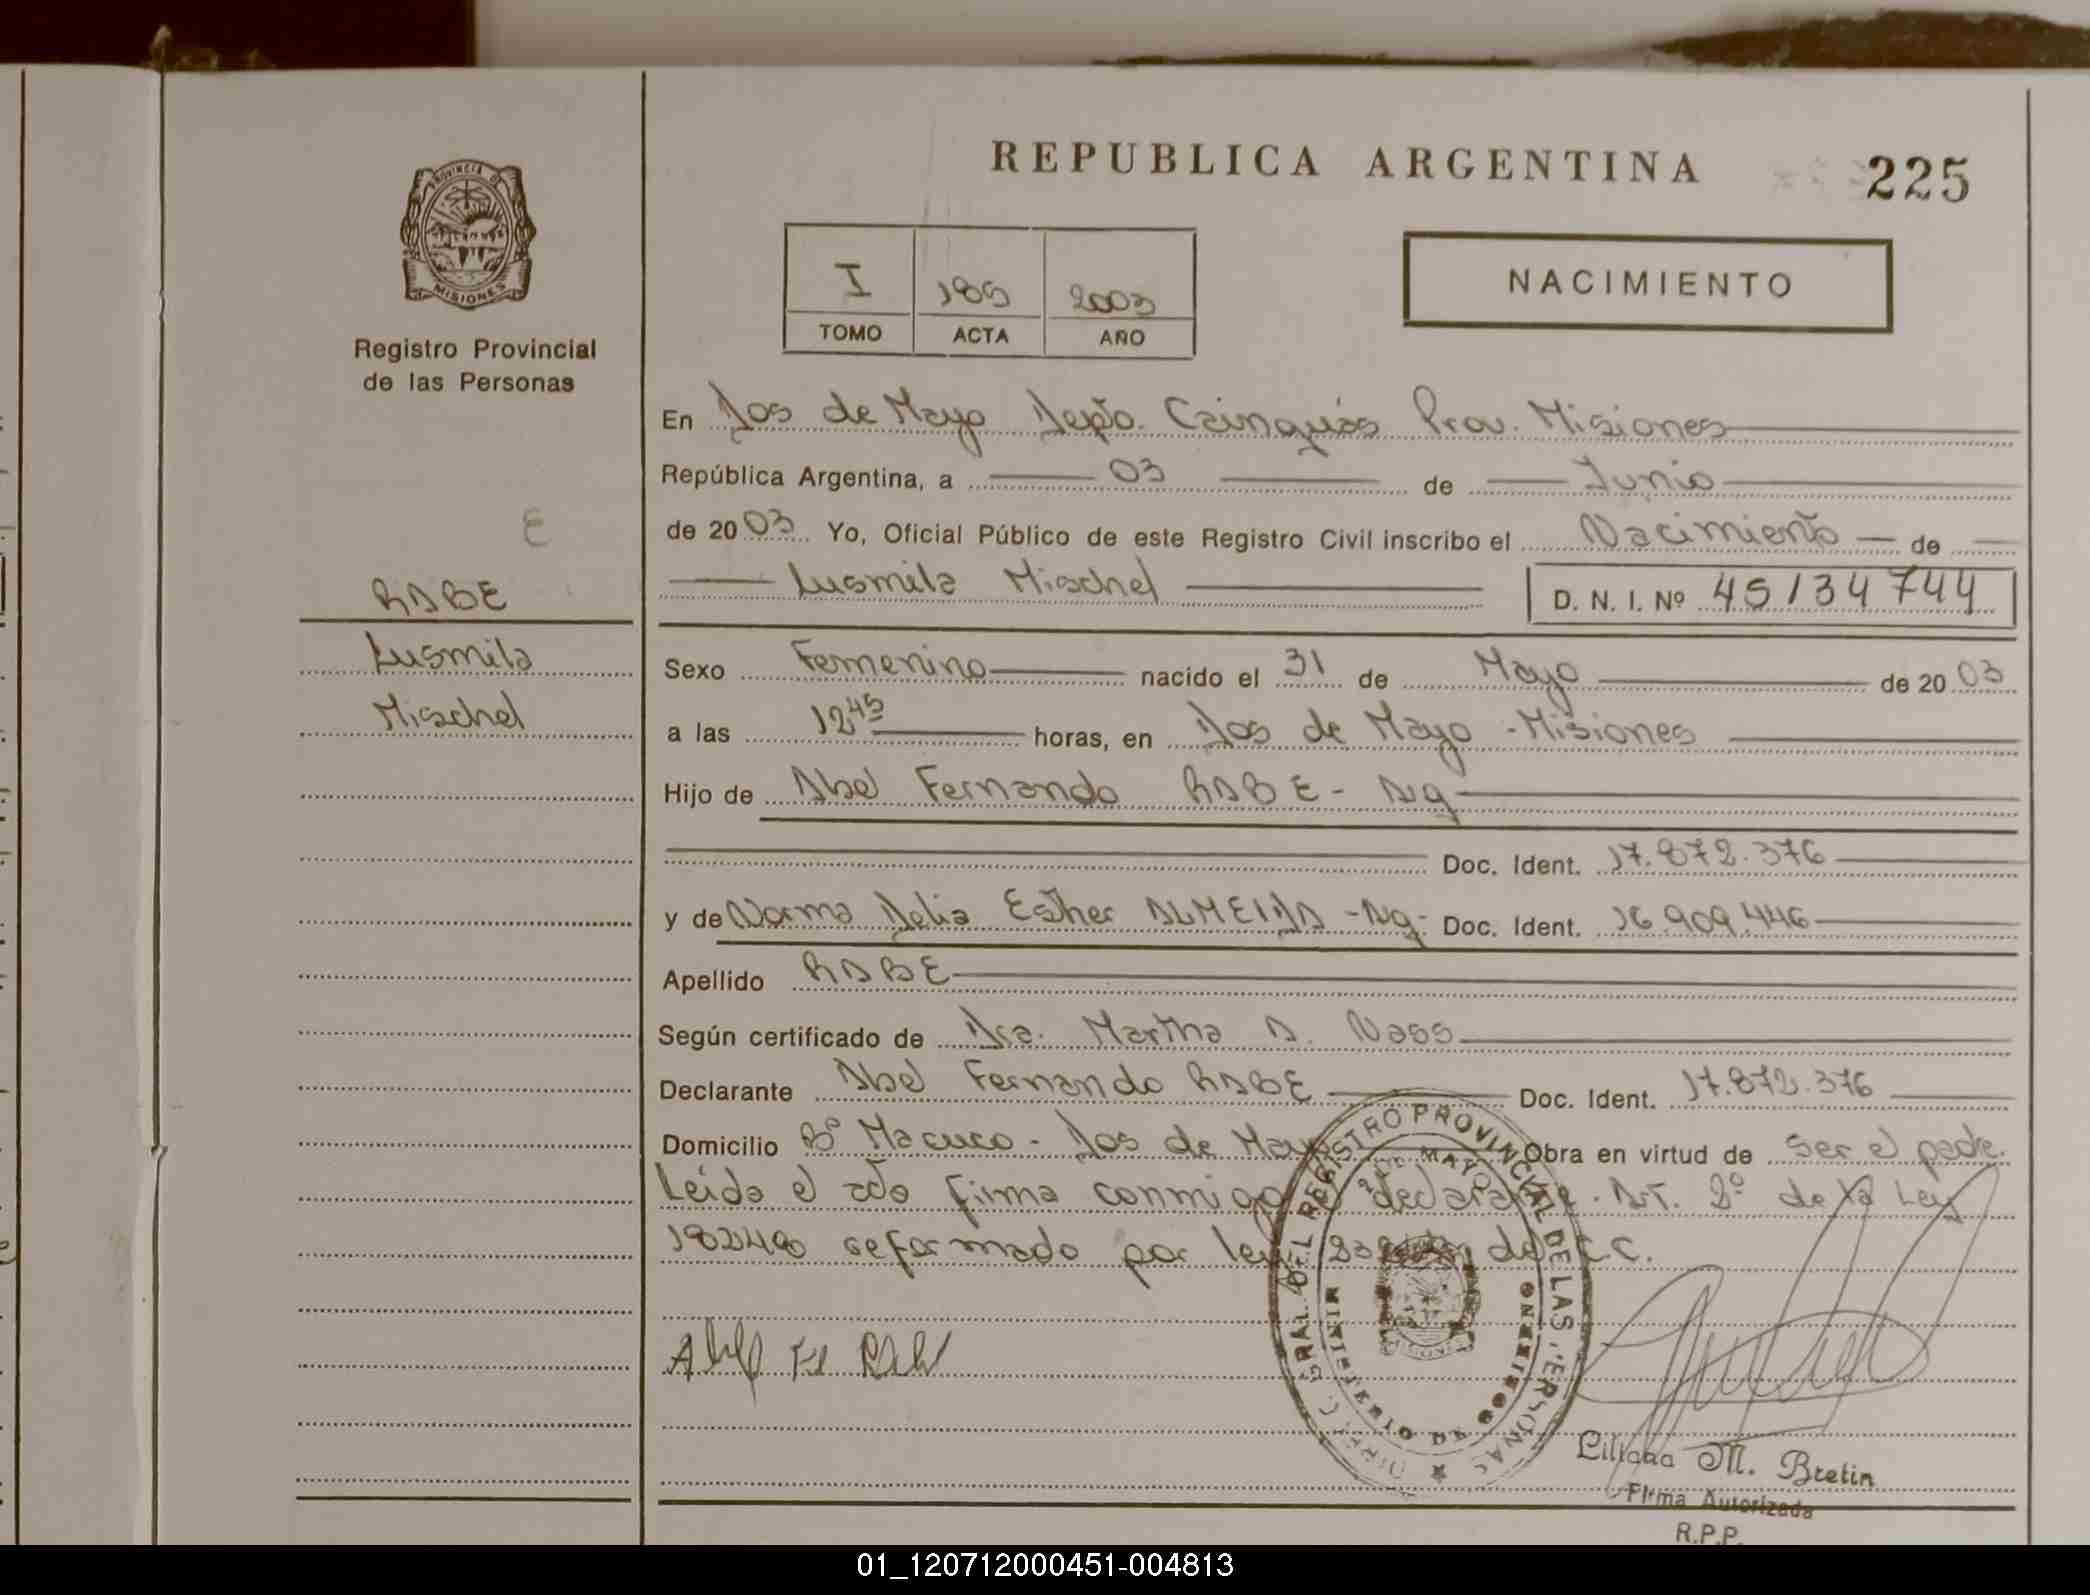 REPUBLICA ARGENTINA
225
PROVINCIA DE
MISIONES
Registro Provincial
de las Personas
I
2003
TOMO
ACTA
AÑO
NACIMIENTO
E
RABE
Lusmila
Mischel
En Dos de Mayo Depto. Cainguás Prov. Misiones
República Argentina, a 03 de Junio
de 2003 Yo, Oficial Público de este Registro Civil inscribo el Nacimiento de
Lusmila Mischel D. N. I. Nº 45134744
Sexo Femenino nacido el 31 de Mayo de 2003
a las 12 45 horas, en Dos de Mayo - Misiones
Hijo de Abel Fernando RABE - Arg
Doc. Ident. 17.872.376
y de Norma Delia Esther ALMEIDA - Arg - Doc. Ident. 16.909.446
Apellido RABE
Según certificado de Dra. Martha A. Nass
Declarante Abel Fernando RABE Doc. Ident. 17.872.376
Domicilio Bº Macuco - Dos de Mayo Obra en virtud de ser el padre.
Leída el acta firma conmigo declarante. Art. 2º de la Ley
18248 reformado por ley del C.C.
DIRECC. GRAL. DEL REGISTRO PROVINCIAL DE LAS PERSONAS
DOS DE MAYO
Liliana M. Bretin
Firma Autorizada
R.P.P.
01_120712000451-004813